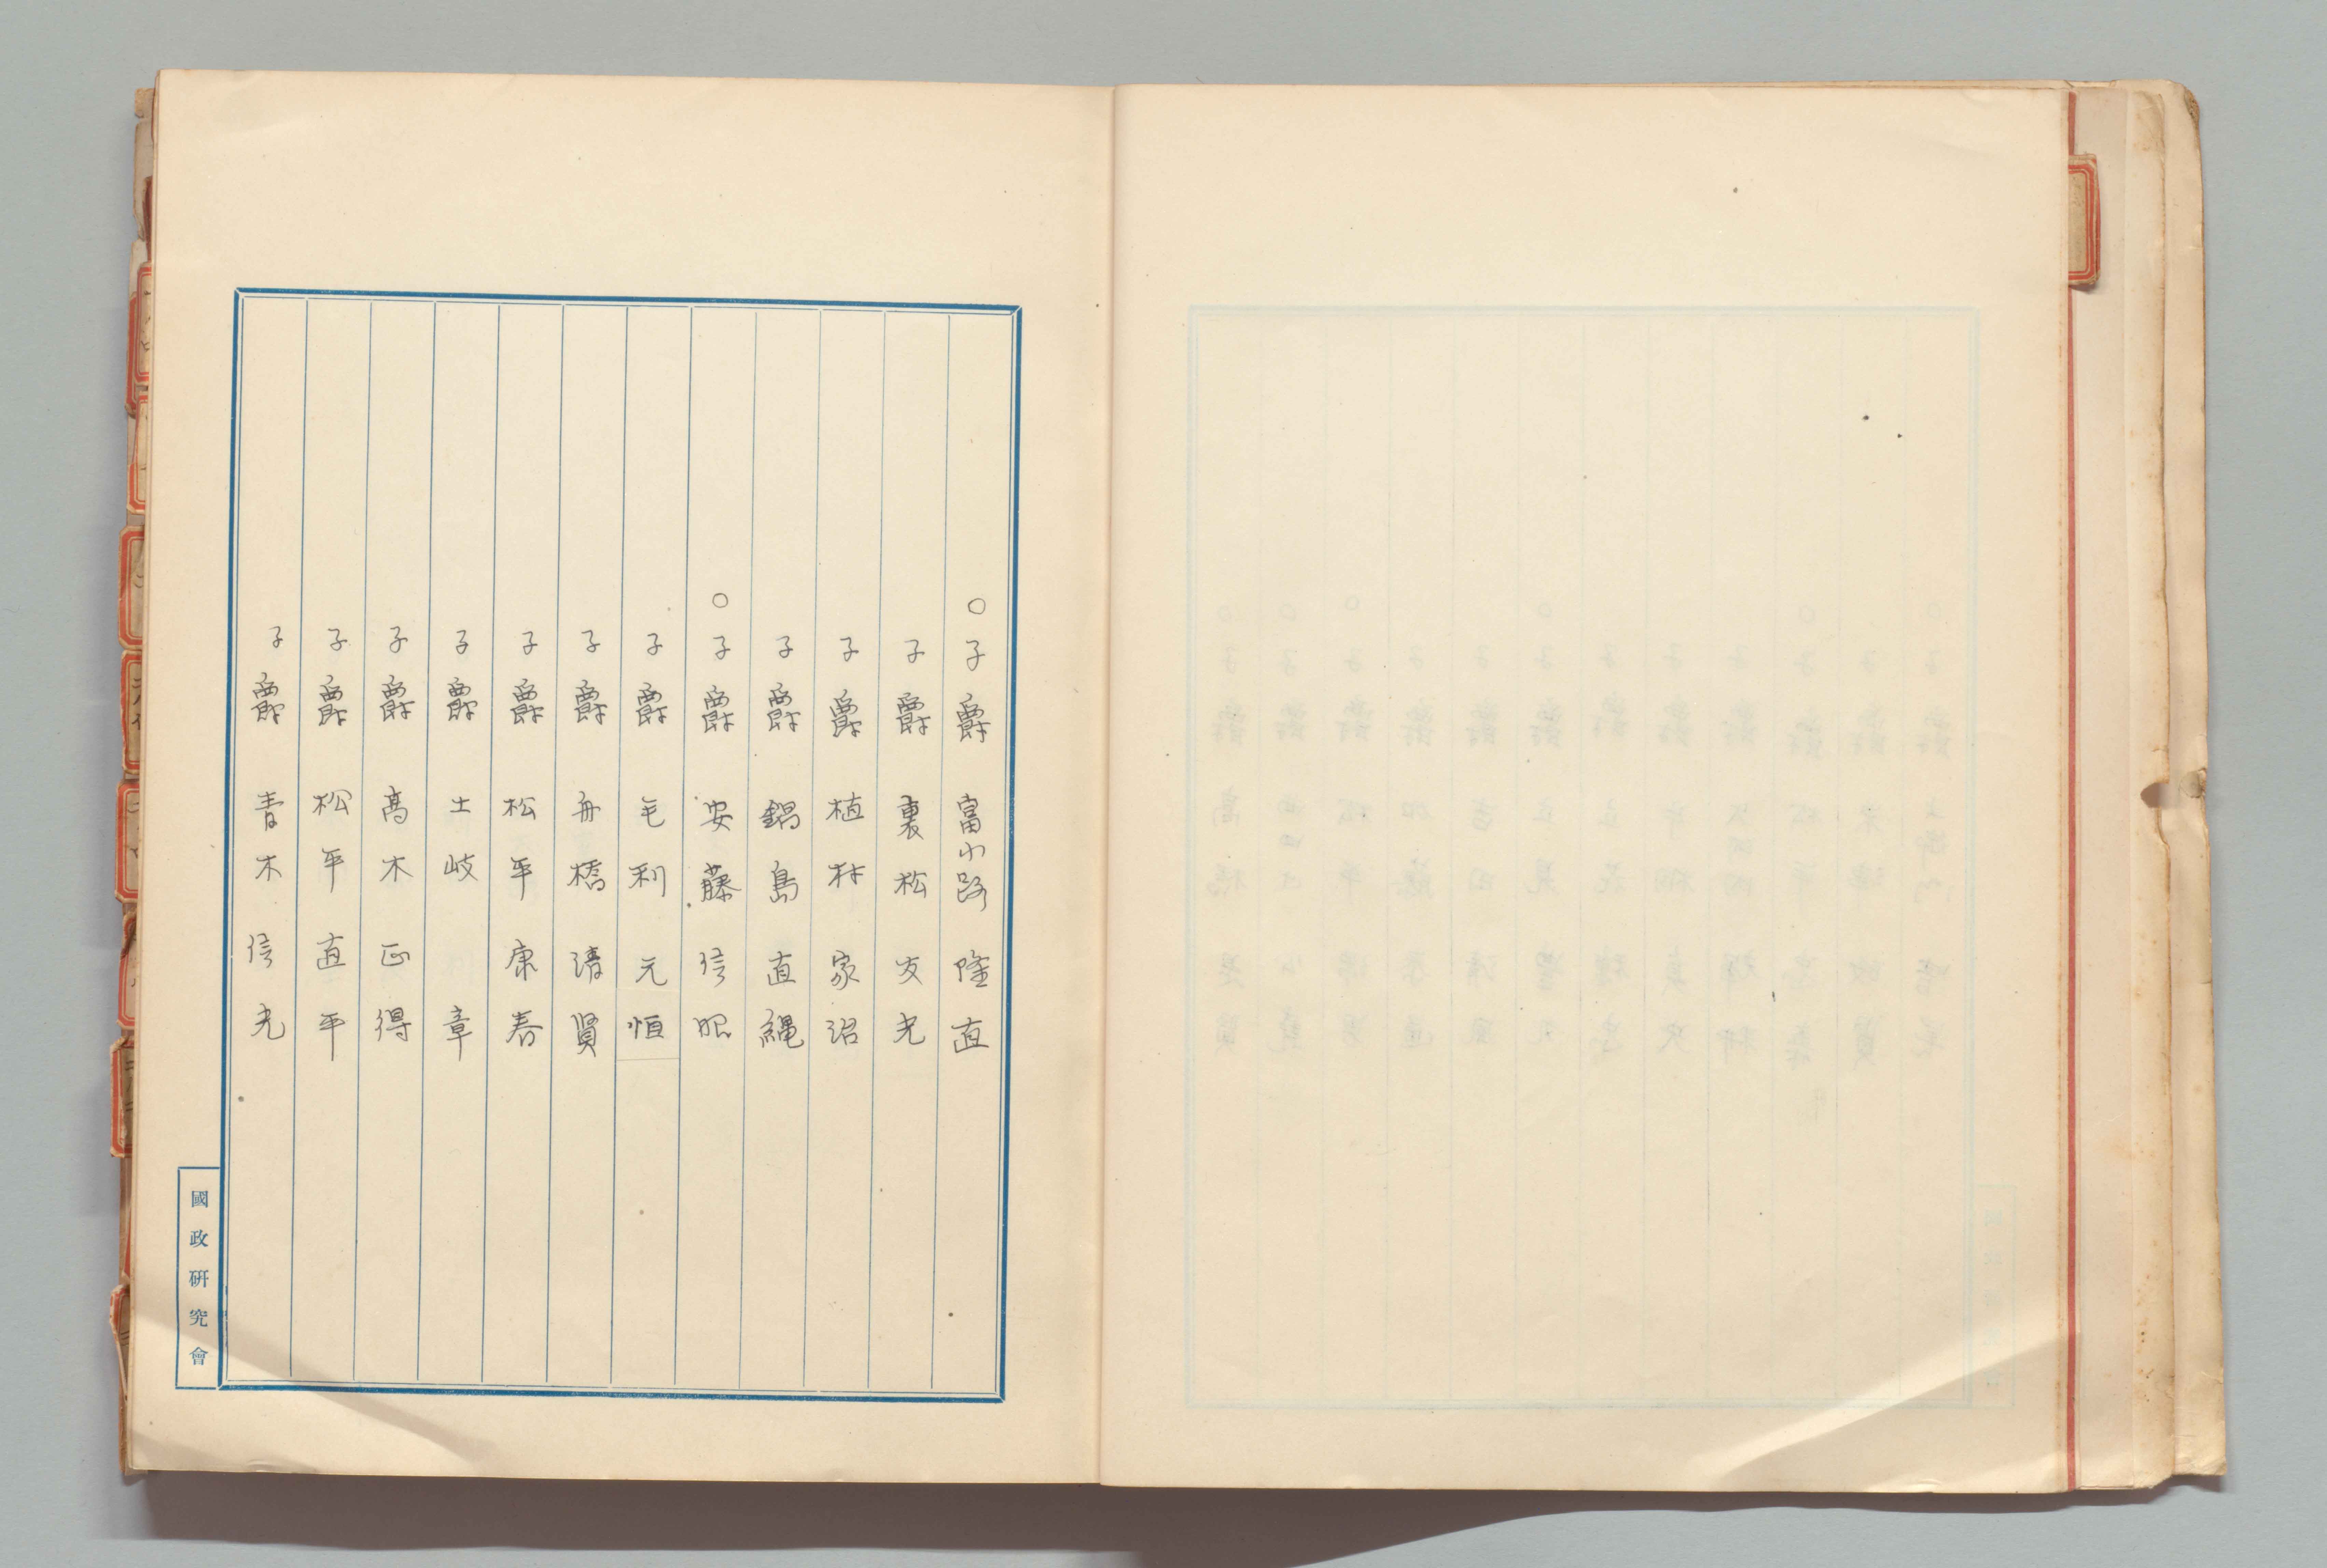 ○子爵 富小路 隆直
子爵 裏松 友光
子爵 植村 家治
子爵 鍋島 直縄
○子爵 安藤 信昭
子爵 毛利 元恒
子爵 舟橋 清賢
子爵 松平 康春
子爵 土岐 章
子爵 高木 正得
子爵 松平 直平
子爵 青木 信光
國政研究會